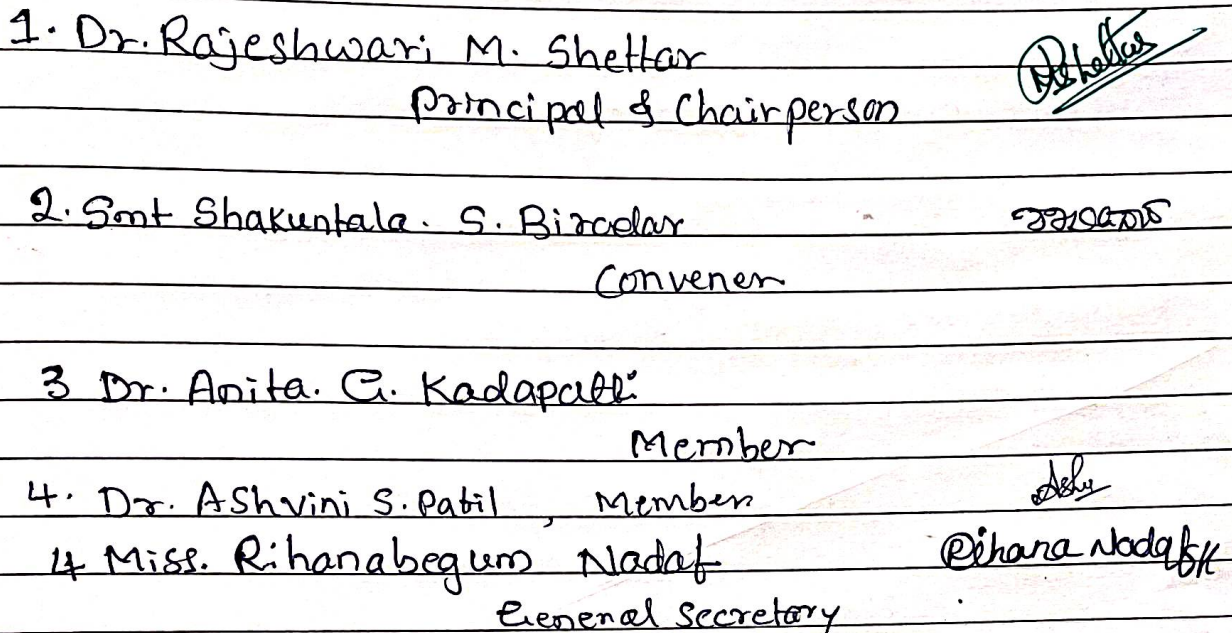 1. Dr. Rajeshwari M. Shettar
Principal & Chairperson
2. Smt Shakuntala. S. Biradar
Convener
3 Dr. Anita. G. Kadapatti
Member
4. Dr. AShvini S. Patil, Member
4 Miss. Rihanabegum Nadaf Rihana Nadaf
General Secretary